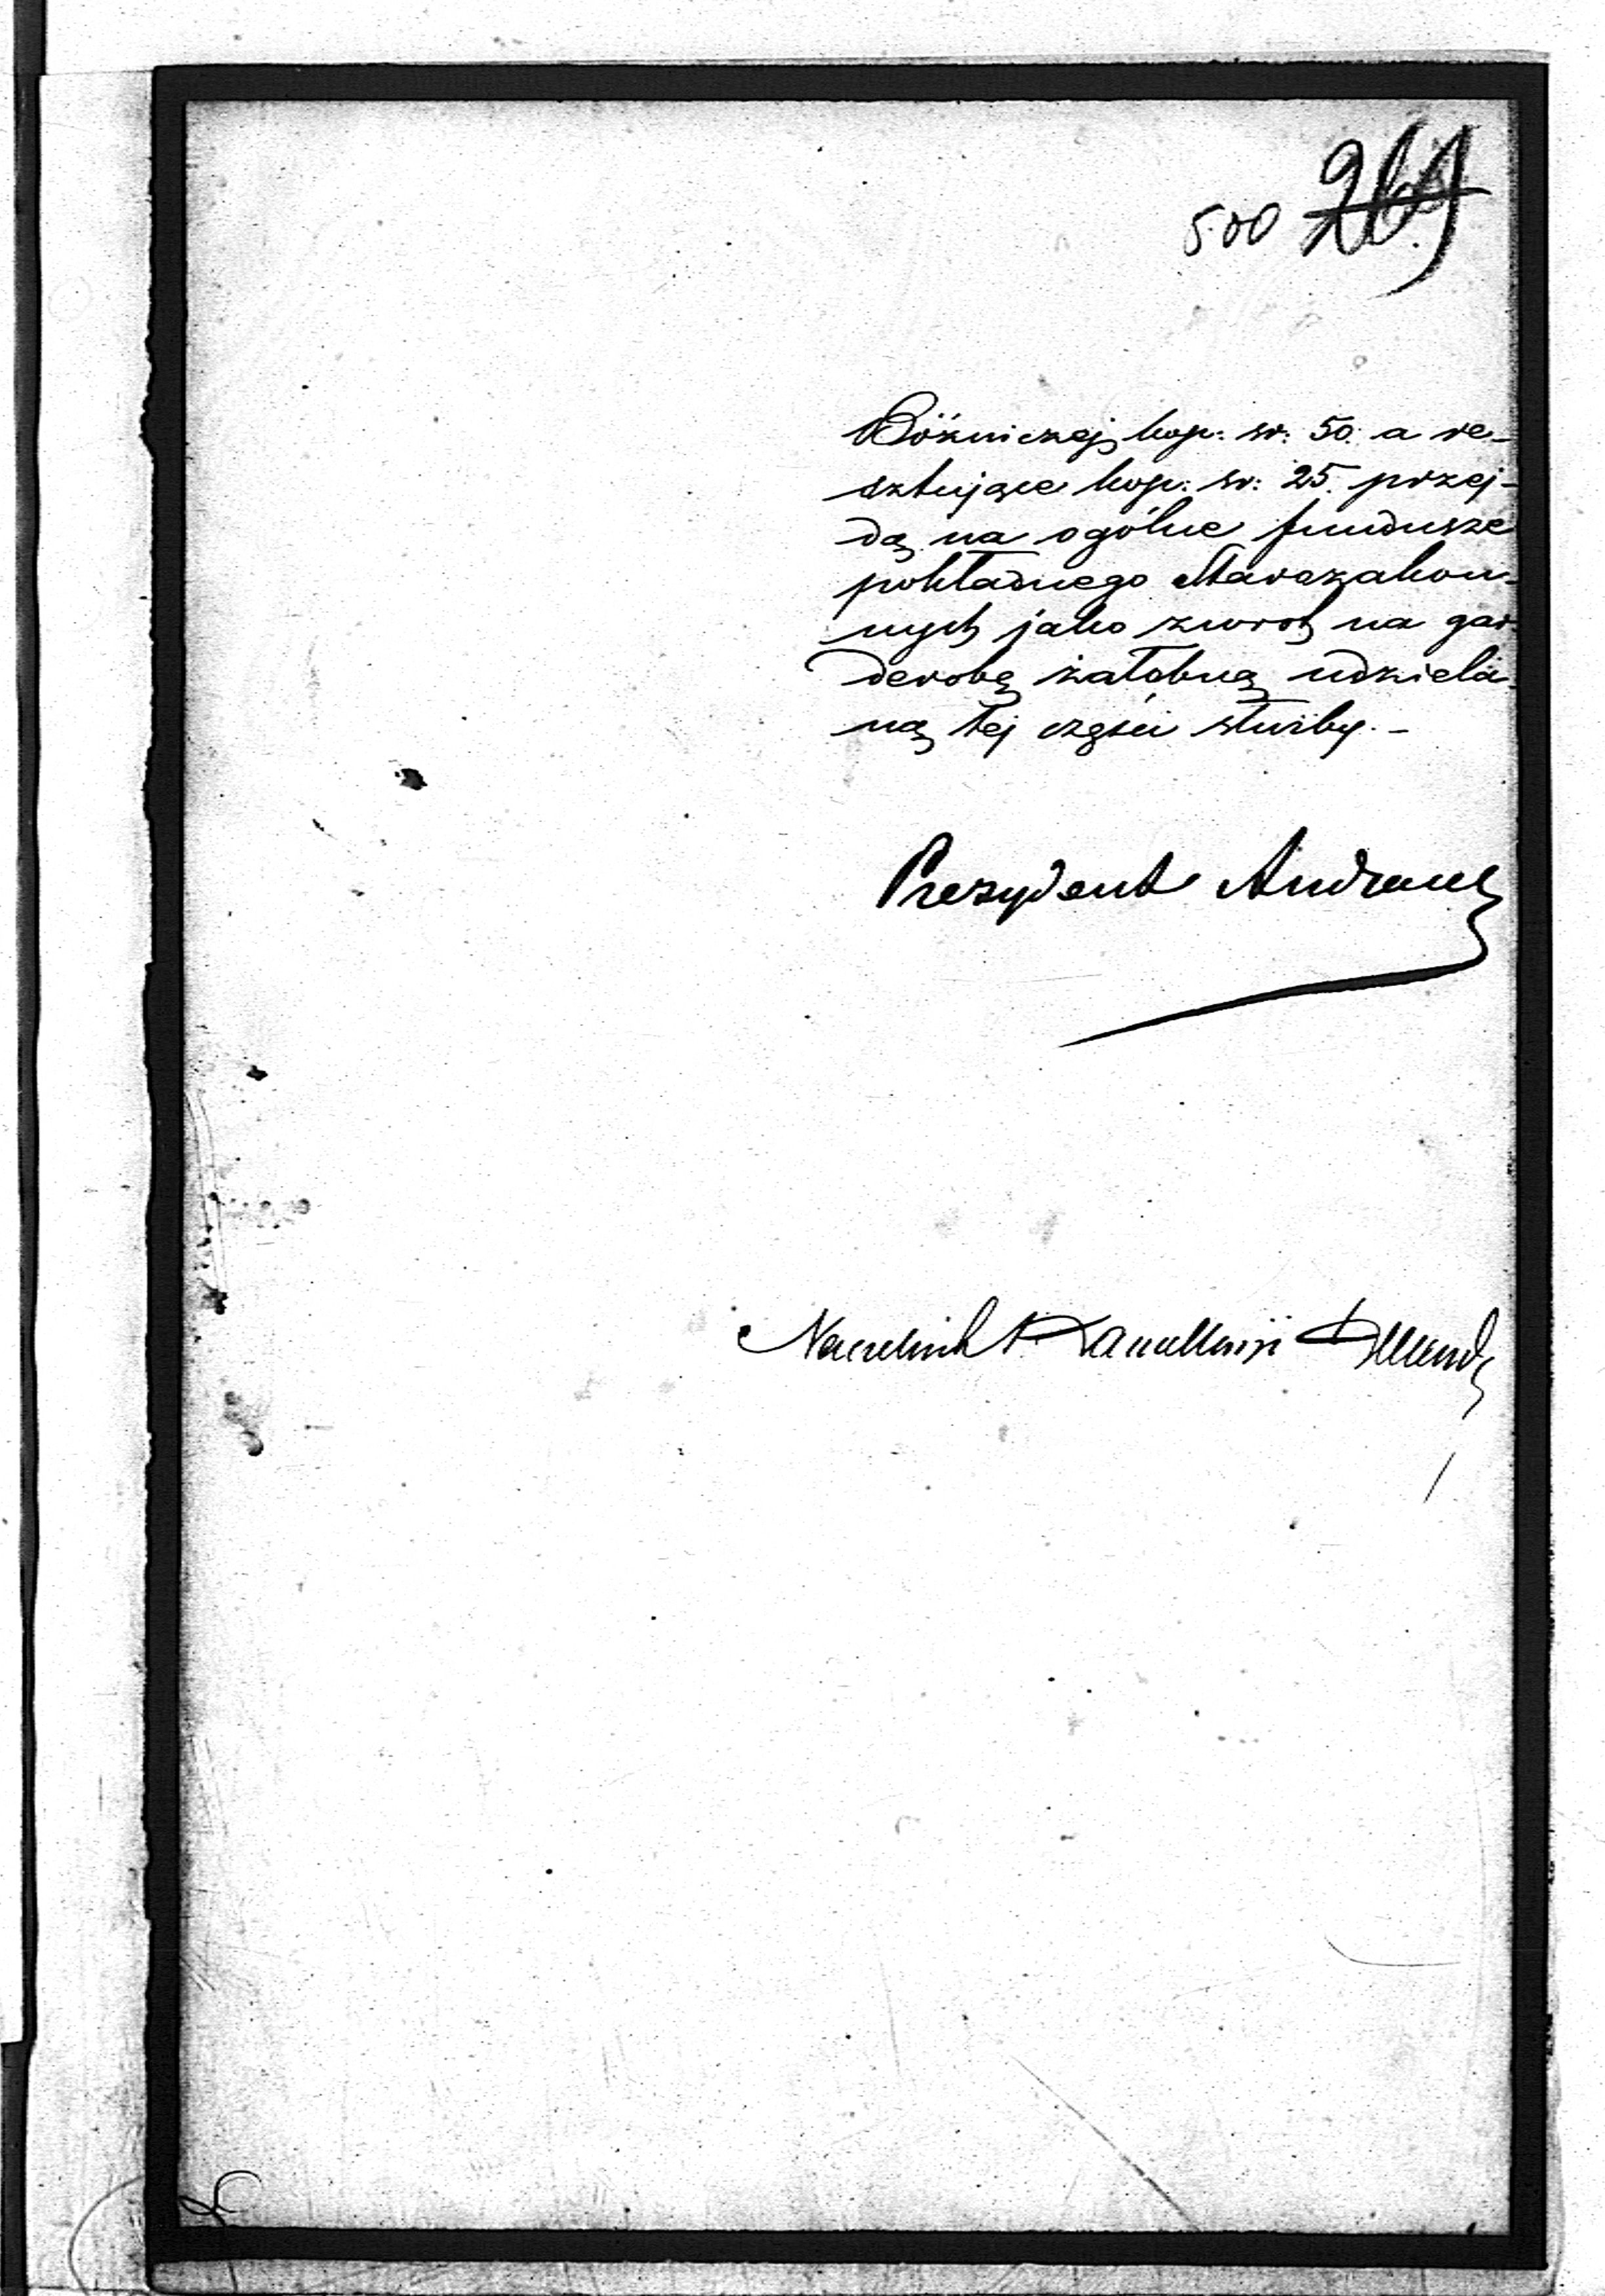 500 269
Bóżniczej kop: sr: 50. a re-
sztujące kop: sr: 25. przej-
dą na ogólne fundusze
pokładnego Starozakon-
nych jako zwrot na gar-
derobę żałobną udziela-
ną tej części służby.-
Prezydent Andrault
Naczelnik Kancellaryi